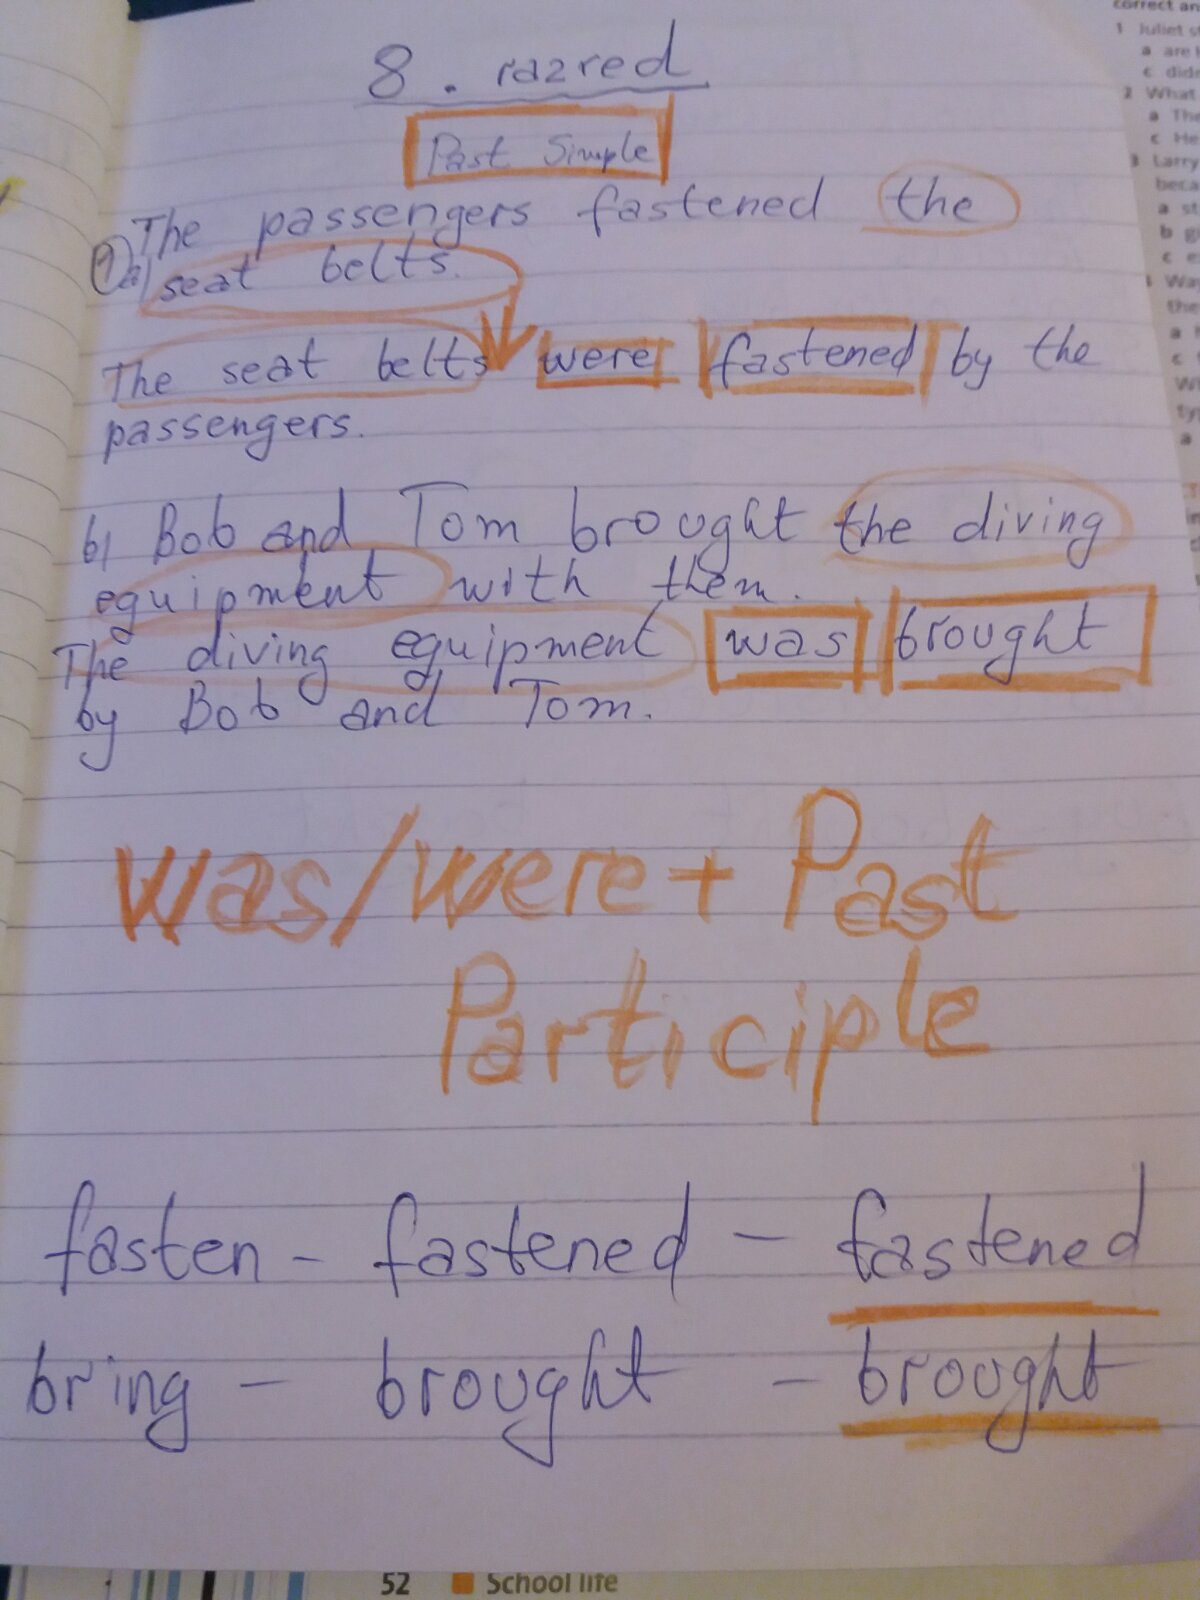 8. razred
Past Simple
The passengers fastened the
1 a) seat belts.
The seat belts were fastened by the
passengers.
b) Bob and Tom brought the diving
equipment with them.
The diving equipment was brought
by Bob and Tom.
was/were + Past
Participle
fasten - fastened - fastened
bring - brought - brought
52 School life
correct an
1 Juliet s
a are
c did
2 What
a The
c He
3 Larry
beca
a st
b g
c e
Way
the
a
c
W
ty
a